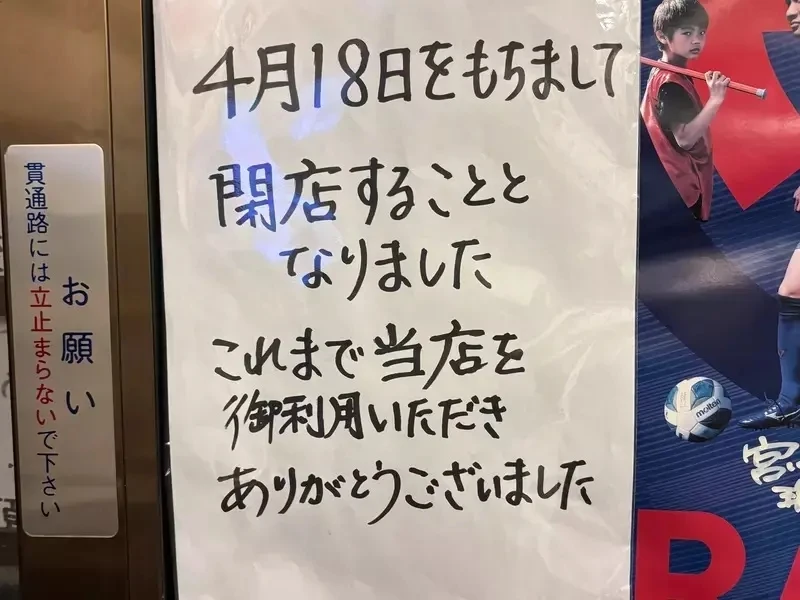 お願い
貫通路には立止まらないで下さい
4月18日をもちまして
閉店することと
なりました
これまで当店を
御利用いただき
ありがとうございました
molten
宮